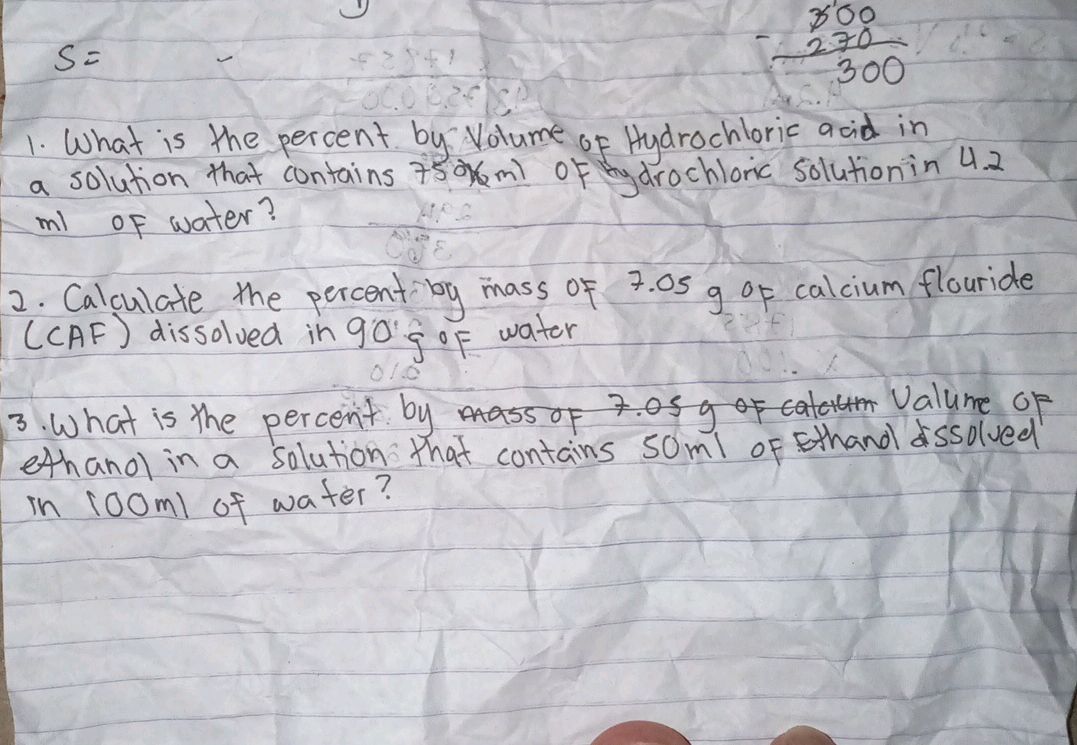 300
- 270
300
S = -
1. What is the percent by Volume OF Hydrochloric acid in
a solution that contains ml OF hydrochloric solution in 4.2
ml OF water?
2. Calculate the percent by mass OF 7.05 g OF calcium flouride
(CAF) dissolved in 90 g OF water
3. What is the percent by mass OF 7.05 g OF calcium Valume OF
ethanol in a solution that contains 50ml OF Ethanol dssolved
in 100ml of water?